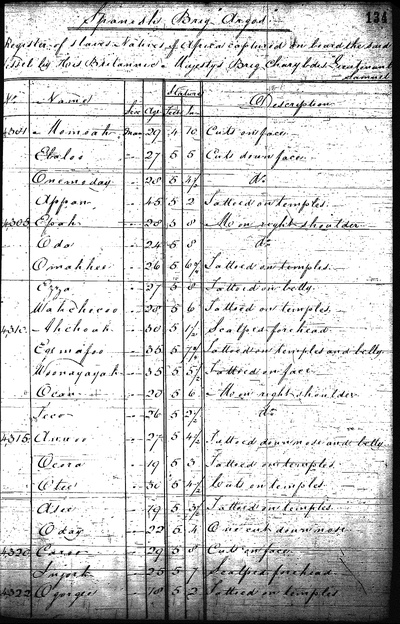 Spanish Brig "Argos"
134
Register of slaves Natives of Africa captured on board the said
Vessel by His Britannic Majesty's Brig Charybdis Lieutenant
Samuel
No. Name Sex Age Stature Feet In. Description
4301 Momoah Man 29 4 10 Cuts on face
Ebaloo 27 5 5 Cuts down face
Onemeday 28 5 4½ do.
Appan 45 5 2 Tattoed on temples
4305 Epah 28 5 8 M on right shoulder
Oda 24 5 8 do.
Omahhee 26 5 Tattoed on temples
Ezza 27 5 Tattoed on belly
28 5 6 Tattoed on temples
4310 Ahchoah 30 5 Scalped forehead
Egemafoo 35 5 Tattoed on temples and belly
Woonayayah 35 5 5½ Tattoed on face
Ocan 20 5 6 M on right shoulder
26 5 2½ do.
4315 Anuoo 27 5 4½ Tattoed down nose and belly
Ocora 19 5 3 Tattoed on temples
Otee 30 5 4½ Cuts on temples
Asee 19 5 3½ Tattoed on temples
Oday 22 5 4 One cut down nose
4320 29 5 8 Cuts on face
25 5 7 Scalped forehead
4322 Ogorgee 18 5 2 Tattoed on temples